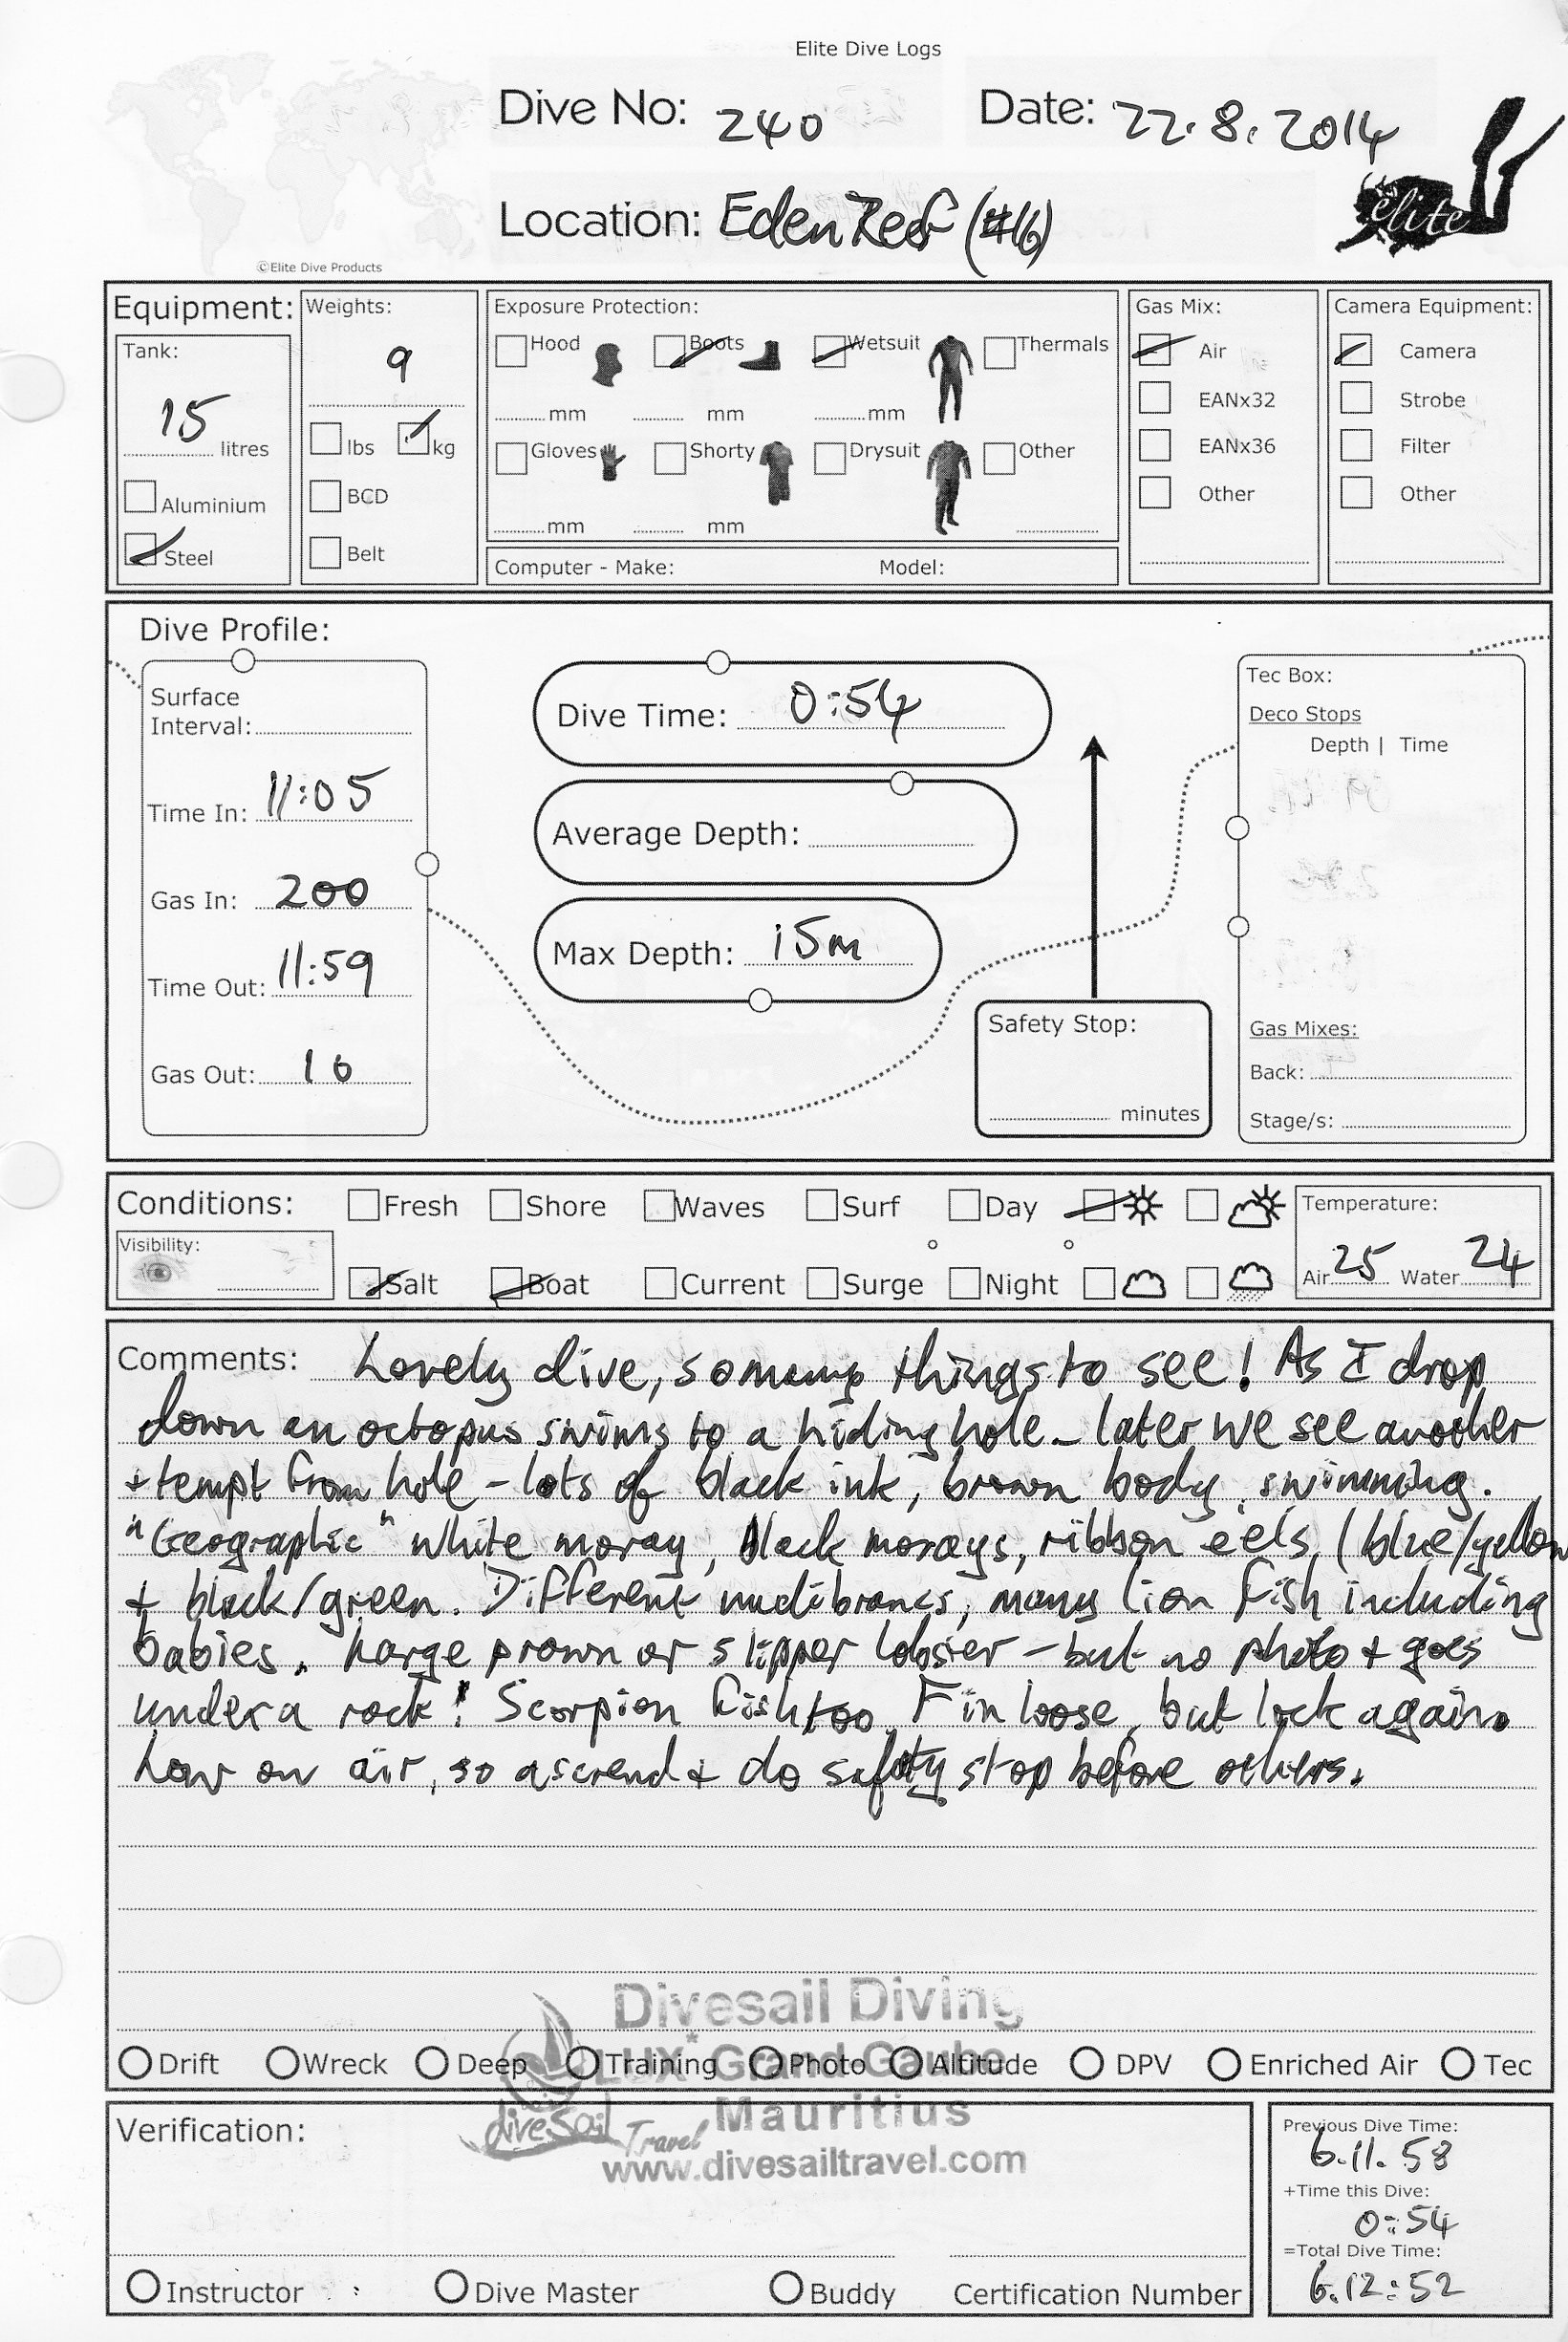 Elite Dive Logs
Dive No: 240 Date: 22.8.2014
Location: Eden Reef (#16)
elite
©Elite Dive Products
Equipment: Weights: Exposure Protection: Gas Mix: Camera Equipment:
Tank: 9 Hood Boots Wetsuit Thermals Air Camera
15 litres mm mm mm EANx32 Strobe
lbs kg Gloves Shorty Drysuit Other EANx36 Filter
Aluminium BCD Other Other
Steel Belt mm mm
Computer - Make: Model:
Dive Profile:
Surface
Interval:
Time In: 11:05
Gas In: 200
Time Out: 11:59
Gas Out: 10
Dive Time: 0:54
Average Depth:
Max Depth: 15m
Safety Stop:
minutes
Tec Box:
Deco Stops
Depth | Time
Gas Mixes:
Back:
Stage/s:
Conditions: Fresh Shore Waves Surf Day Temperature:
Visibility: Salt Boat Current Surge Night Air 25 Water 24
Comments: Lovely dive, so many things to see! As I drop
down an octopus swims to a hiding hole - later we see another
+ tempt from hole - lots of black ink, brown body, swimming.
"Geographic" white moray, black morays, ribbon eels, (blue/yellow
+ black/green. Different nudibrancs, many lion fish including
babies. Large prawn or slipper lobster - but no photo + goes
under a rock! Scorpion fish too. Fin loose, but lock again.
Low on air, so ascend + do safety stop before others.
Divesail Diving
LUX* Grand Gaube
Mauritius
diveSail Travel
www.divesailtravel.com
Drift Wreck Deep Training Photo Altitude DPV Enriched Air Tec
Verification:
Instructor Dive Master Buddy Certification Number
Previous Dive Time:
6.11.58
+Time this Dive:
0:54
=Total Dive Time:
6.12:52